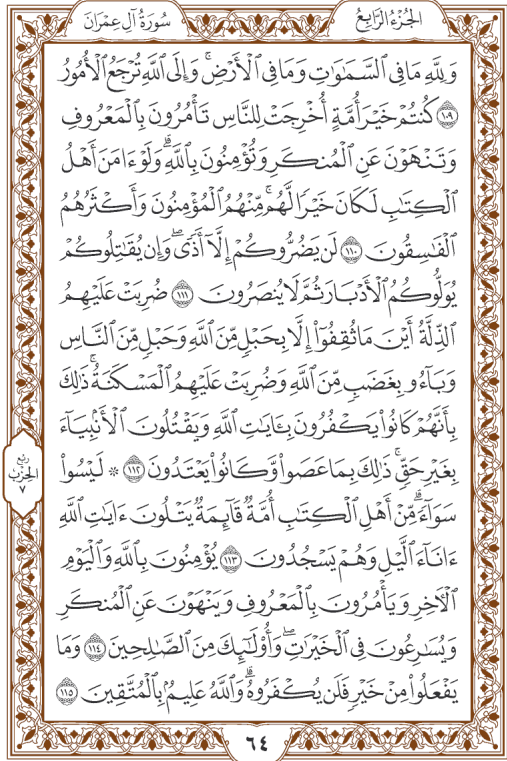 الجُزْءُ الرَّابِعُ
سُورَةُ آلِ عِمْرَانَ
وَلِلَّهِ مَا فِي السَّمَٰوَٰتِ وَمَا فِي الْأَرْضِ ۚ وَإِلَى اللَّهِ تُرْجَعُ الْأُمُورُ
١٠٩ كُنتُمْ خَيْرَ أُمَّةٍ أُخْرِجَتْ لِلنَّاسِ تَأْمُرُونَ بِالْمَعْرُوفِ
وَتَنْهَوْنَ عَنِ الْمُنكَرِ وَتُؤْمِنُونَ بِاللَّهِ ۗ وَلَوْ ءَامَنَ أَهْلُ
الْكِتَٰبِ لَكَانَ خَيْرًا لَّهُم ۚ مِّنْهُمُ الْمُؤْمِنُونَ وَأَكْثَرُهُمُ
الْفَٰسِقُونَ ١١٠ لَن يَضُرُّوكُمْ إِلَّا أَذًى ۖ وَإِن يُقَٰتِلُوكُمْ
يُوَلُّوكُمُ الْأَدْبَارَ ثُمَّ لَا يُنصَرُونَ ١١١ ضُرِبَتْ عَلَيْهِمُ
الذِّلَّةُ أَيْنَ مَا ثُقِفُوٓا۟ إِلَّا بِحَبْلٍ مِّنَ اللَّهِ وَحَبْلٍ مِّنَ النَّاسِ
وَبَآءُو بِغَضَبٍ مِّنَ اللَّهِ وَضُرِبَتْ عَلَيْهِمُ الْمَسْكَنَةُ ۚ ذَٰلِكَ
بِأَنَّهُمْ كَانُوا۟ يَكْفُرُونَ بِـَٔايَٰتِ اللَّهِ وَيَقْتُلُونَ الْأَنۢبِيَآءَ
بِغَيْرِ حَقٍّ ۚ ذَٰلِكَ بِمَا عَصَوا۟ وَّكَانُوا۟ يَعْتَدُونَ ١١٢ ۞ لَيْسُوا۟
سَوَآءً ۗ مِّنْ أَهْلِ الْكِتَٰبِ أُمَّةٌ قَآئِمَةٌ يَتْلُونَ ءَايَٰتِ اللَّهِ
ءَانَآءَ الَّيْلِ وَهُمْ يَسْجُدُونَ ١١٣ يُؤْمِنُونَ بِاللَّهِ وَالْيَوْمِ
الْآخِرِ وَيَأْمُرُونَ بِالْمَعْرُوفِ وَيَنْهَوْنَ عَنِ الْمُنكَرِ
وَيُسَٰرِعُونَ فِي الْخَيْرَٰتِ ۖ وَأُو۟لَٰٓئِكَ مِنَ الصَّٰلِحِينَ ١١٤ وَمَا
يَفْعَلُوا۟ مِنْ خَيْرٍ فَلَن يُكْفَرُوهُ ۗ وَاللَّهُ عَلِيمٌۢ بِالْمُتَّقِينَ ١١٥
رُبع
الحِزْب
٧
٦٤